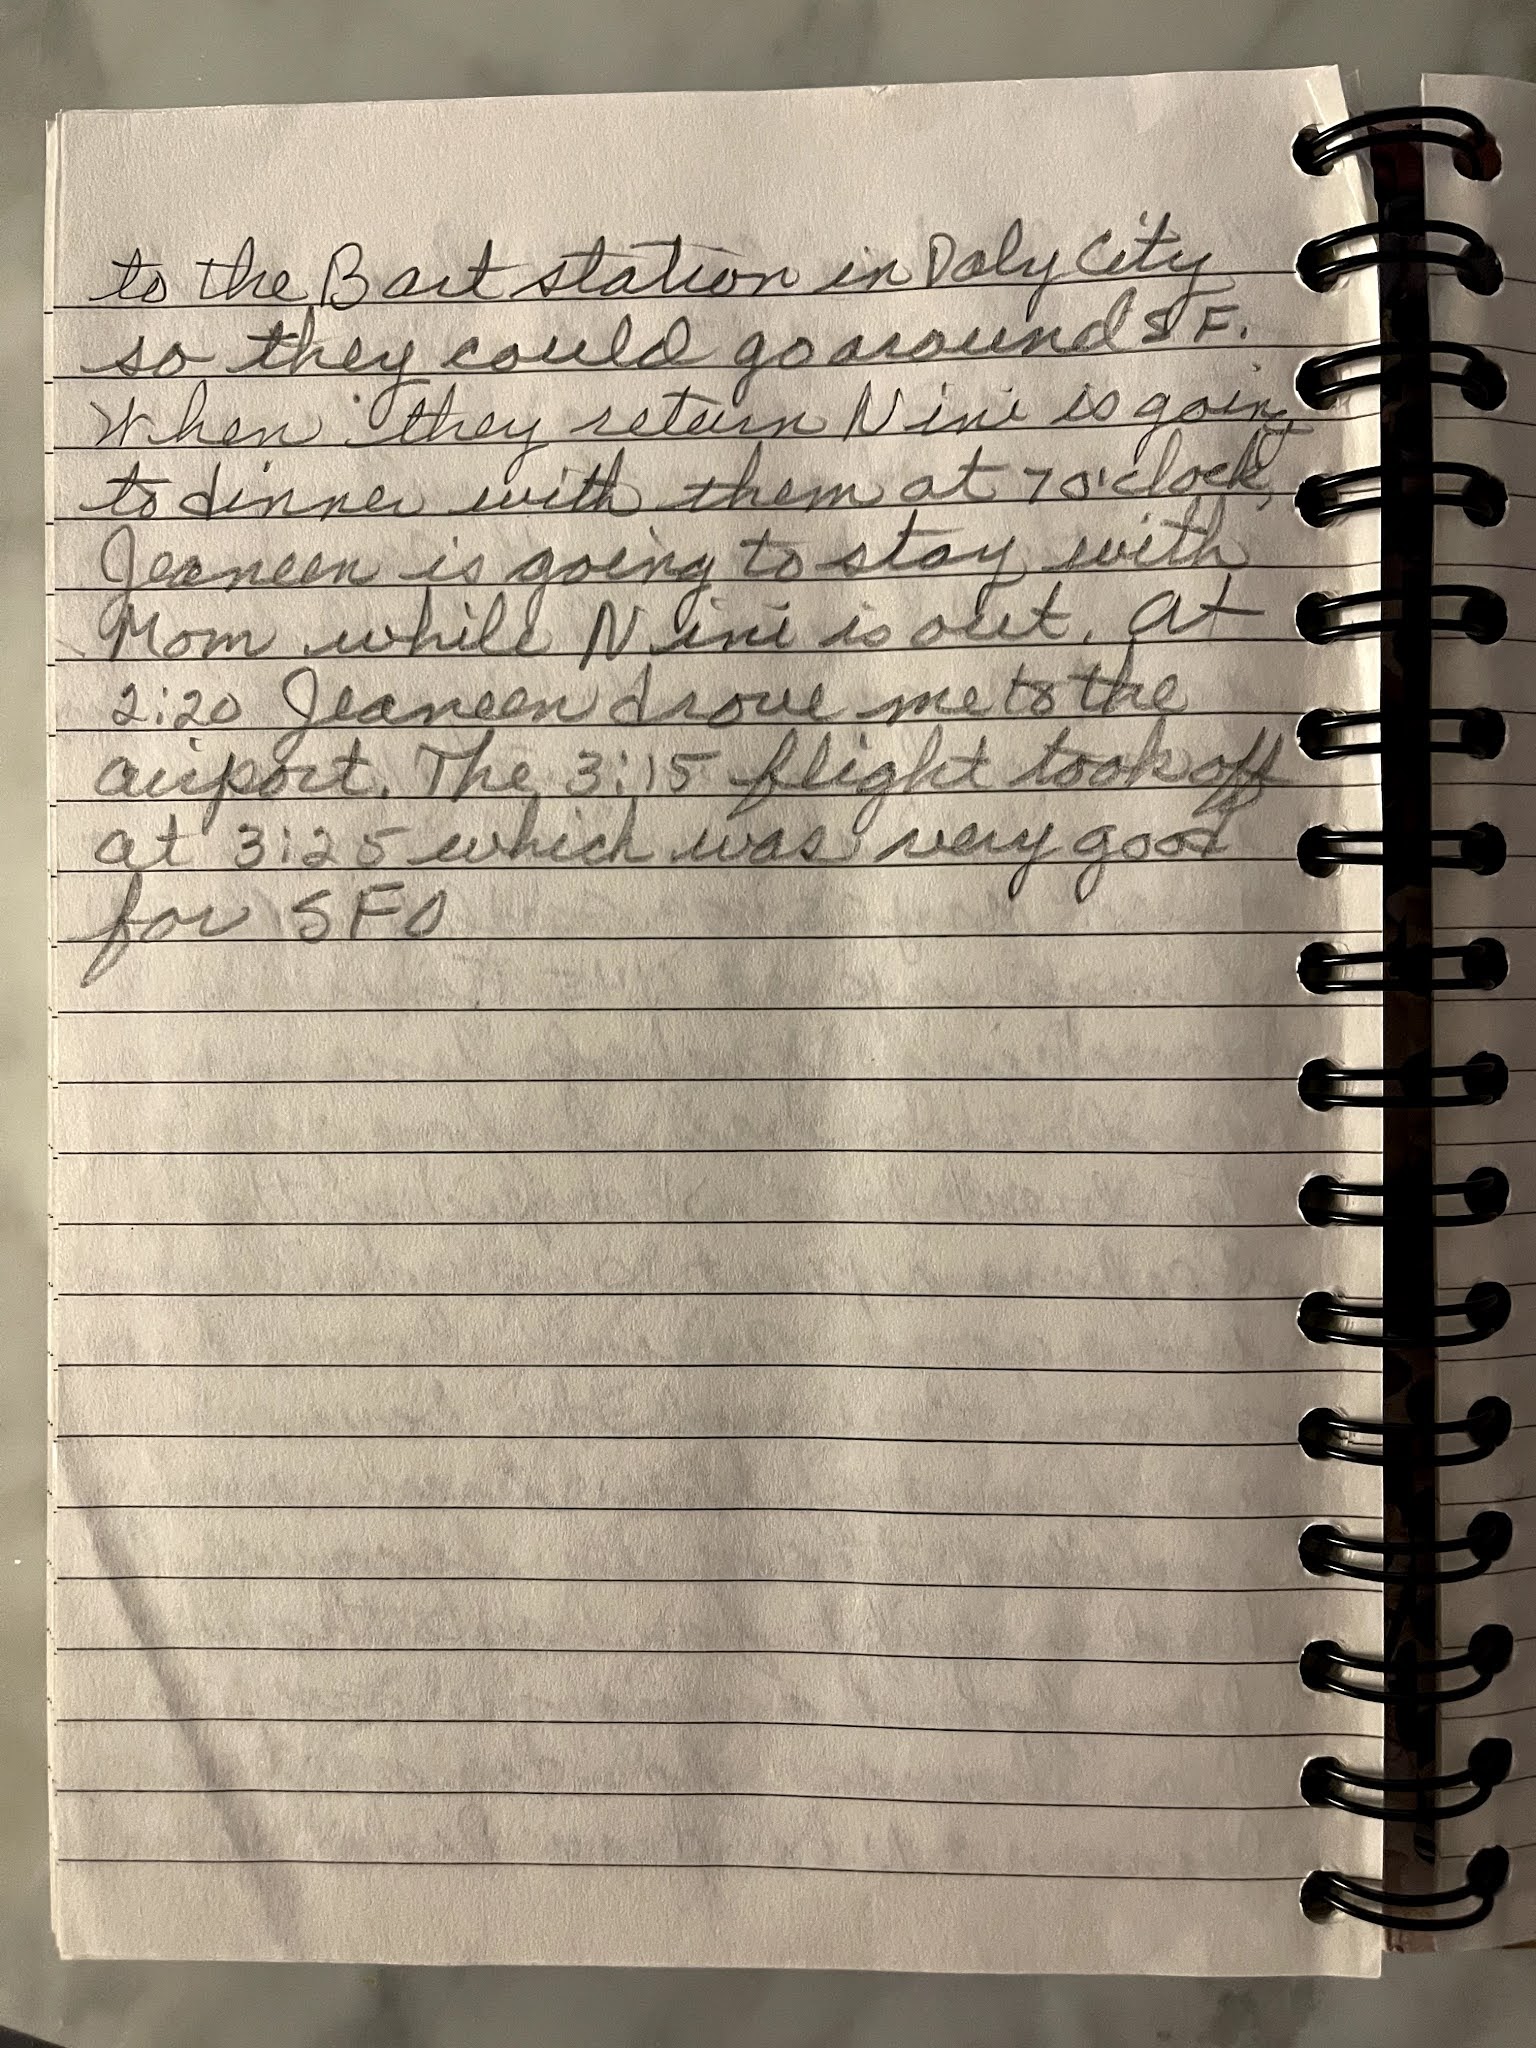 to the Bart station in Daly City
so they could go around SF.
When they return Nini is going
to dinner with them at 7 o'clock,
Jeaneen is going to stay with
Mom while Nini is out. At
2:20 Jeaneen drove me to the
airport. The 3:15 flight took off
at 3:25 which was very good
for SFO